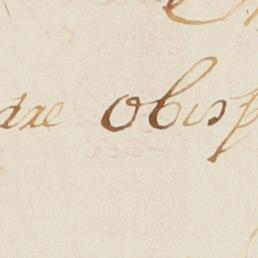 dre obisp